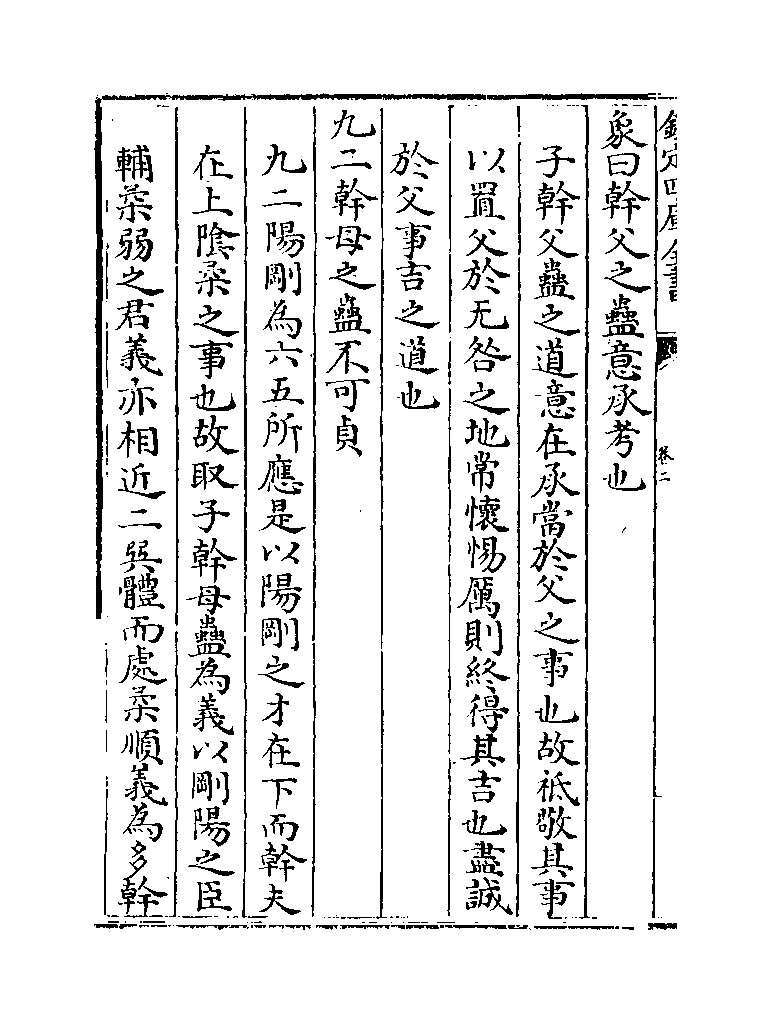 欽定四庫全書
卷二
象曰幹父之蠱意承考也
子幹父蠱之道意在承當於父之事也故祗敬其事
以置父於无咎之地常懷惕厲則終得其吉也盡誠
於父事吉之道也
九二幹母之蠱不可貞
九二陽剛為六五所應是以陽剛之才在下而幹夫
在上陰柔之事也故取子幹母蠱為義以剛陽之臣
輔柔弱之君義亦相近二巽體而處柔順義為多幹